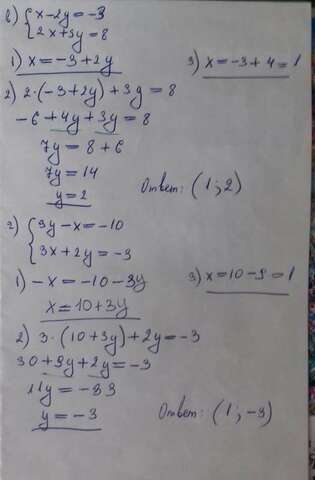 в) { x-2y=-3
2x+3y=8
1) x=-3+2y
3) x=-3+4=1
2) 2·(-3+2y)+3y=8
-6+4y+3y=8
7y=8+6
7y=14
y=2
Ответ: (1;2)
г) { 3y-x=-10
3x+2y=-3
1) -x=-10-3y
3) x=10-9=1
x=10+3y
2) 3·(10+3y)+2y=-3
30+9y+2y=-3
11y=-33
y=-3
Ответ: (1;-3)